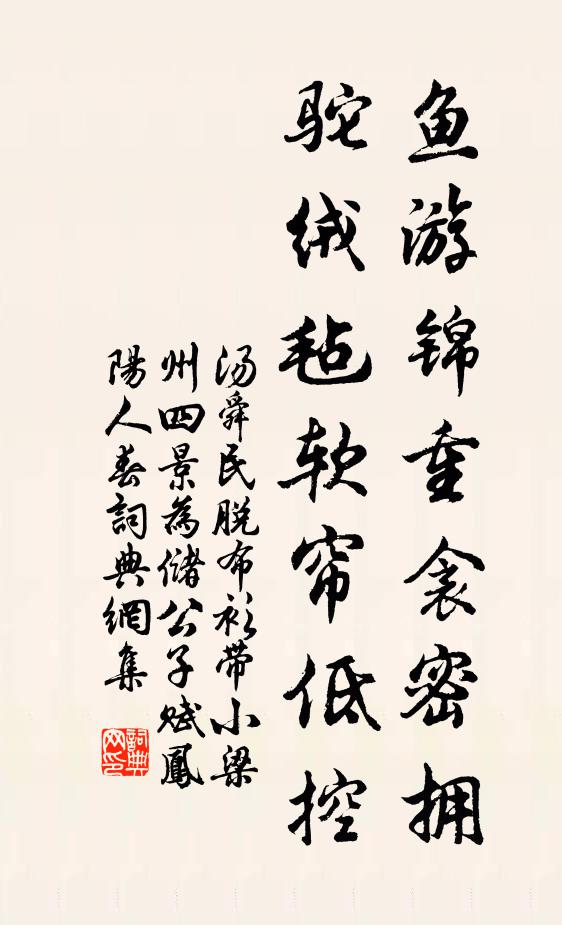 鱼游锦重衾密拥
驼绒毡软帘低控
汤舜民脱布衫带小梁
州四景為儲公子赋鳳
陽人春詞典網集
詞典网印